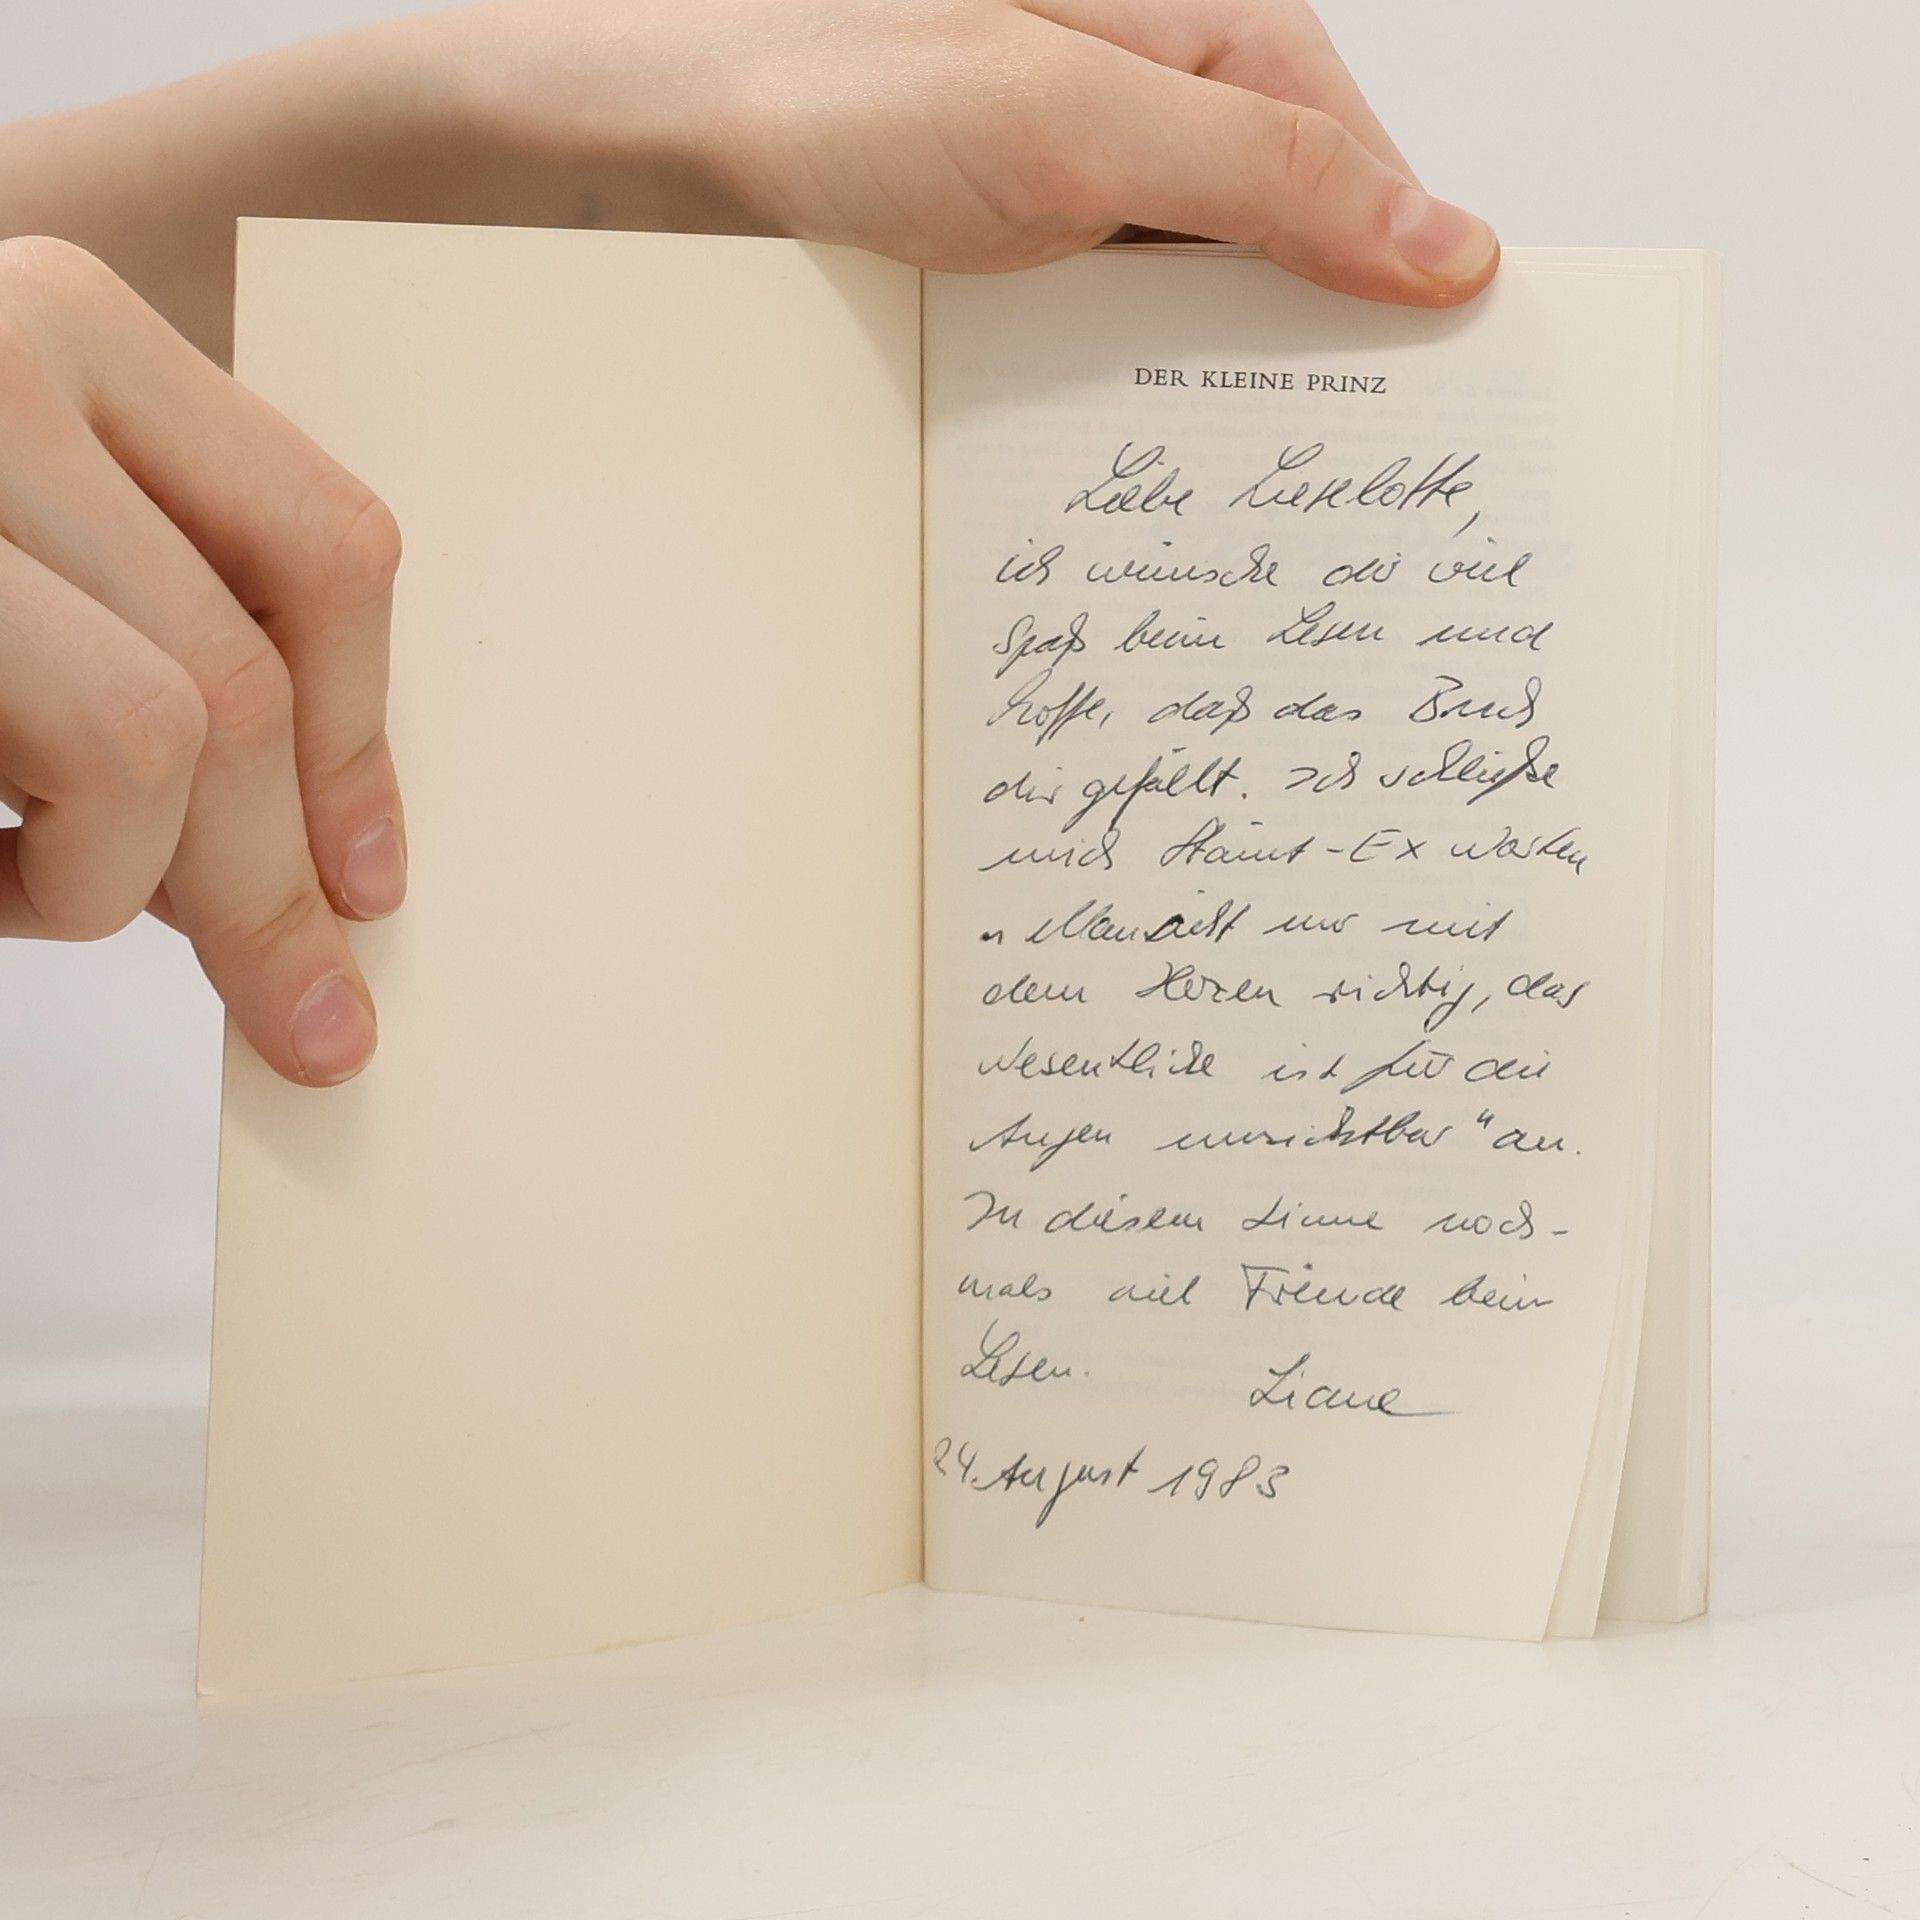 DER KLEINE PRINZ
Liebe Lieselotte,
ich wünsche dir viel
Spaß beim Lesen und
hoffe, daß das Buch
dir gefällt. Ich schließe
mich Staint-Ex Worten
„ Man sieht nur mit
dem Herzen richtig, das
Wesentliche ist für die
Augen unsichtbar" an.
In diesem Sinne noch-
mals viel Freude beim
Lesen.
Liane
24. August 1983